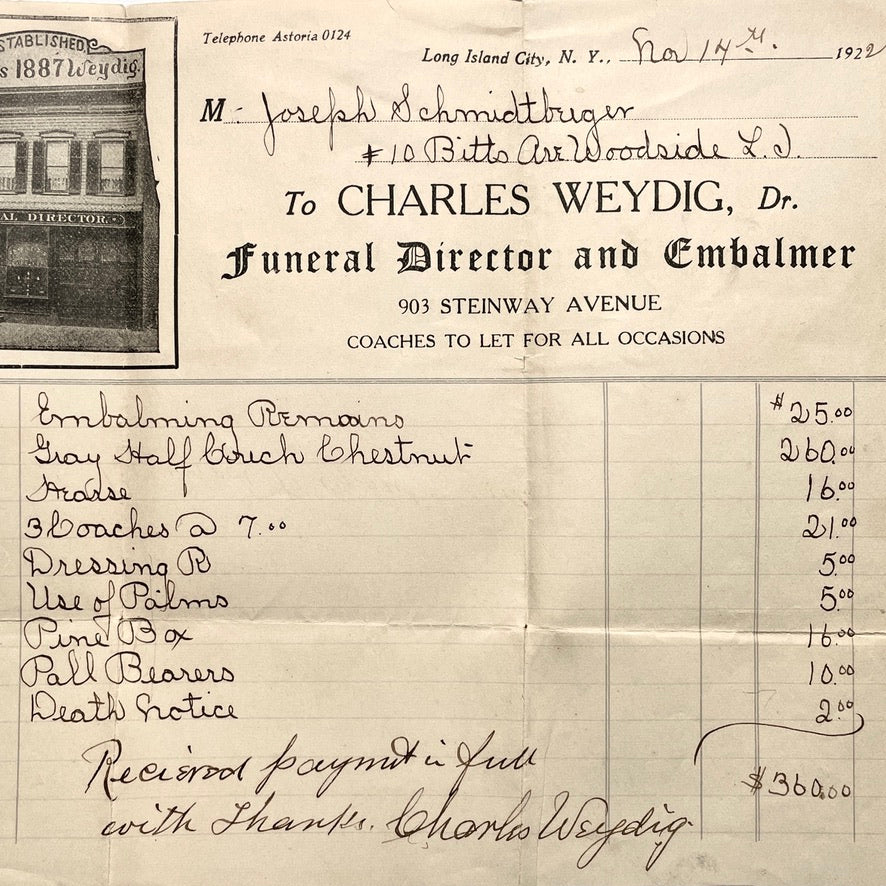 STABLISHED
s 1887 Weydig.
AL DIRECTOR.
Telephone Astoria 0124
Long Island City, N. Y., Nov 14th. 1922
M: Joseph Schmidtbuger
#10 Bitts Ave Woodside L.I.
To CHARLES WEYDIG, Dr.
Funeral Director and Embalmer
903 STEINWAY AVENUE
COACHES TO LET FOR ALL OCCASIONS
Embalming Remains $25.00
Gray Half Couch Chestnut 260.00
Hearse 16.00
3 Coaches @ 7.00 21.00
Dressing R 5.00
Use of Palms 5.00
Pine Box 16.00
Pall Bearers 10.00
Death Notice 2.00
$360.00
Recieved paymt in full
with Thanks. Charles Weydig.